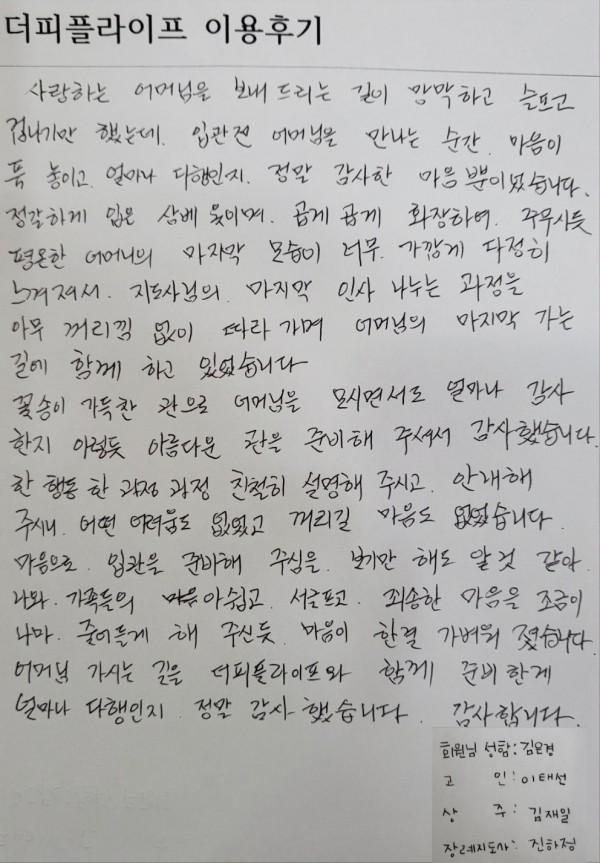 더피플라이프 이용후기
사랑하는 어머님을 보내 드리는 길이 망막하고 슬프고
겁나기만 했는데. 입관전 어머님을 만나는 순간. 마음이
푹 놓이고. 얼마나 다행인지. 정말 감사한 마음 뿐이였습니다.
정갈하게 입은 삼베 옷이며. 곱게 곱게 화장하여. 주무시듯
평온한 어머니의 마지막 모습이 너무. 가깝게 다정히
느껴져서. 지도사님의. 마지막 인사 나누는 과정을
아무 꺼리낌 없이 따라 가며 어머님의 마지막 가는
길에 함께 하고 있었습니다
꽃송이 가득찬 관으로 어머님을 모시면서도 얼마나 감사
한지 아렇듯 아름다운 관을 준비해 주셔서 감사했습니다.
한 행동 한 과정 과정 친철히 설명해 주시고. 안내해
주시니. 어떤 어려움도 없었고 꺼리길 마음도 없었습니다.
마음으로. 입관을 준비해 주심을. 보기만 해도 알 것 같아.
나와. 가족들의 아쉽고. 서글프고. 죄송한 마음을 조금이
나마. 줄어들게 해 주신듯. 마음이 한결 가벼워 졌습니다.
어머님 가시는 길을 더피플라이프와 함께 준비한게
얼마나 다행인지. 정말 감사 했습니다. 감사합니다.
회원님 성함: 김은경
고 인: 이태선
상 주: 김재일
장례지도사: 진하정